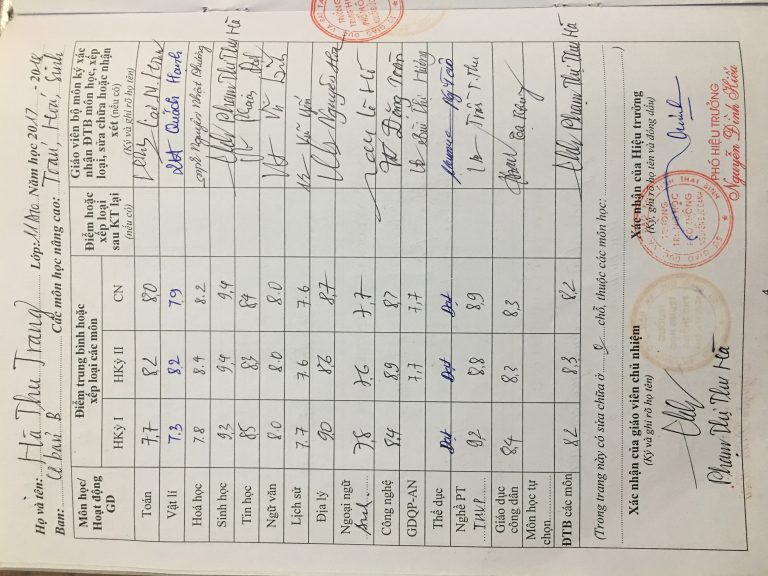 Họ và tên: Hà Thu Trang Lớp: 11A10 Năm học 2017 - 2018
Ban: Cơ bản B Các môn học nâng cao: Toán, Hoá, Sinh
Môn học/ Hoạt động GD
Điểm trung bình hoặc xếp loại các môn
Điểm hoặc xếp loại sau KT lại (nếu có)
Giáo viên bộ môn ký xác nhận ĐTB môn học, xếp loại, sửa chữa hoặc nhận xét (nếu có)
(Ký và ghi rõ họ tên)
HKỳ I HKỳ II CN
Toán 7,7 8,2 8,0
Vật lí 7.3 8.2 7.9 Quách Hạnh
Hoá học 7.8 8.4 8.2 Nguyễn Nhật Phương
Sinh học 9,3 9,4 9,4 Phạm Thị Thu Hà
Tin học 8,5 8,3 8,4
Ngữ văn 8.0 8.0 8.0
Lịch sử 7.7 7.6 7.6
Địa lý 9,0 8,6 8,7
Ngoại ngữ Anh. 7,8 7,6 7,7
Công nghệ 8,4 8,9 8,7
GDQP-AN 7,7 7,7
Thể dục Đạt Đạt Đạt
Nghề PT 9,2 8,8 8,9
Giáo dục công dân 8,4 8,3 8,3
Môn học tự chọn
ĐTB các môn 8,2 8,3 8,2 Phạm Thị Thu Hà
(Trong trang này có sửa chữa ở 0 chỗ, thuộc các môn học:
Xác nhận của giáo viên chủ nhiệm
(Ký và ghi rõ họ tên)
Phạm Thị Thu Hà
Xác nhận của Hiệu trưởng
(Ký, ghi rõ họ tên và đóng dấu)
PHÓ HIỆU TRƯỞNG
Nguyễn Đình Hiếu